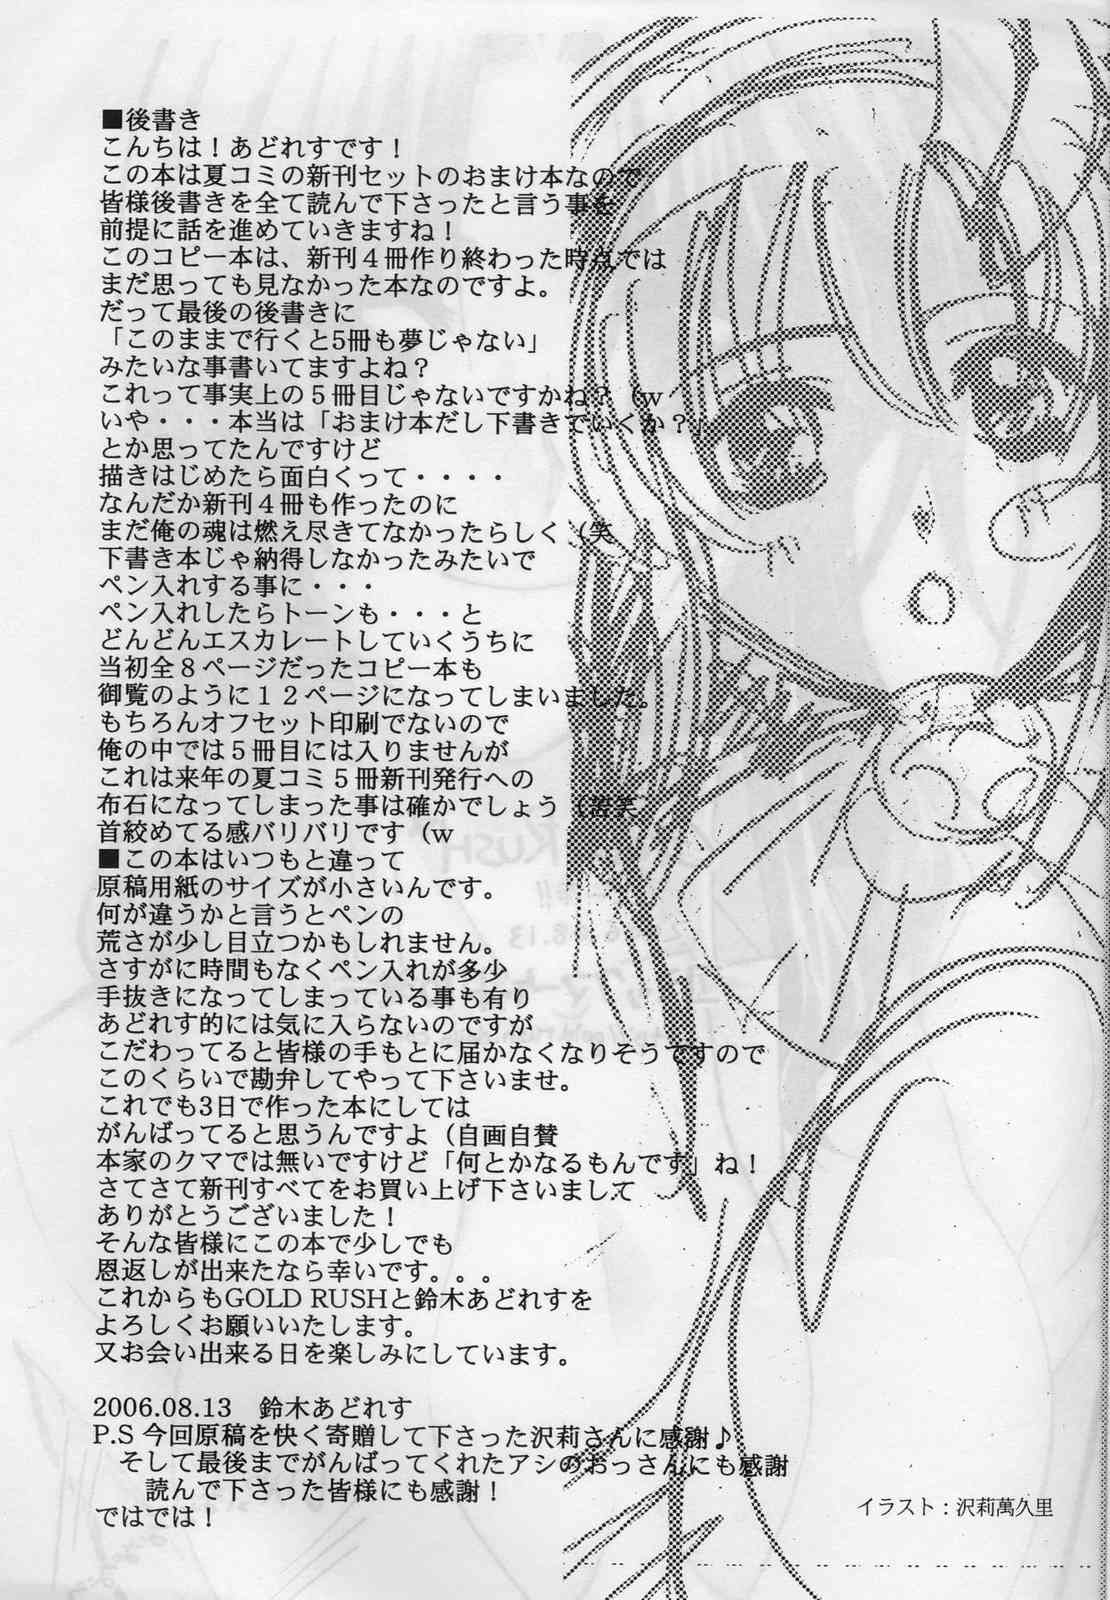 ■後書き
こんちは！あどれすです！
この本は夏コミの新刊セットのおまけ本なので
皆様後書きを全て読んで下さったと言う事を
前提に話を進めていきますね！
このコピー本は、新刊４冊作り終わった時点では
まだ思っても見なかった本なのですよ。
だって最後の後書きに
「このままで行くと5冊も夢じゃない」
みたいな事書いてますよね？
これって事実上の５冊目じゃないですかね？（w
いや・・・本当は「おまけ本だし下書きでいくか？」
とか思ってたんですけど
描きはじめたら面白くって・・・・
なんだか新刊４冊も作ったのに
まだ俺の魂は燃え尽きてなかったらしく（笑
下書き本じゃ納得しなかったみたいで
ペン入れする事に・・・
ペン入れしたらトーンも・・・と
どんどんエスカレートしていくうちに
当初全８ページだったコピー本も
御覧のように１２ページになってしまいました。
もちろんオフセット印刷でないので
俺の中では５冊目には入りませんが
これは来年の夏コミ５冊新刊発行への
布石になってしまった事は確かでしょう（苦笑
首絞めてる感バリバリです（w
■この本はいつもと違って
原稿用紙のサイズが小さいんです。
何が違うかと言うとペンの
荒さが少し目立つかもしれません。
さすがに時間もなくペン入れが多少
手抜きになってしまっている事も有り
あどれす的には気に入らないのですが
こだわってると皆様の手もとに届かなくなりそうですので
このくらいで勘弁してやって下さいませ。
これでも3日で作った本にしては
がんばってると思うんですよ（自画自賛
本家のクマでは無いですけど「何とかなるもんです」ね！
さてさて新刊すべてをお買い上げ下さいまして
ありがとうございました！
そんな皆様にこの本で少しでも
恩返しが出来たなら幸いです。。。
これからもGOLD RUSHと鈴木あどれすを
よろしくお願いいたします。
又お会い出来る日を楽しみにしています。
2006.08.13　鈴木あどれす
P.S 今回原稿を快く寄贈して下さった沢莉さんに感謝♪
そして最後までがんばってくれたアシのおっさんにも感謝
読んで下さった皆様にも感謝！
ではでは！
イラスト：沢莉萬久里